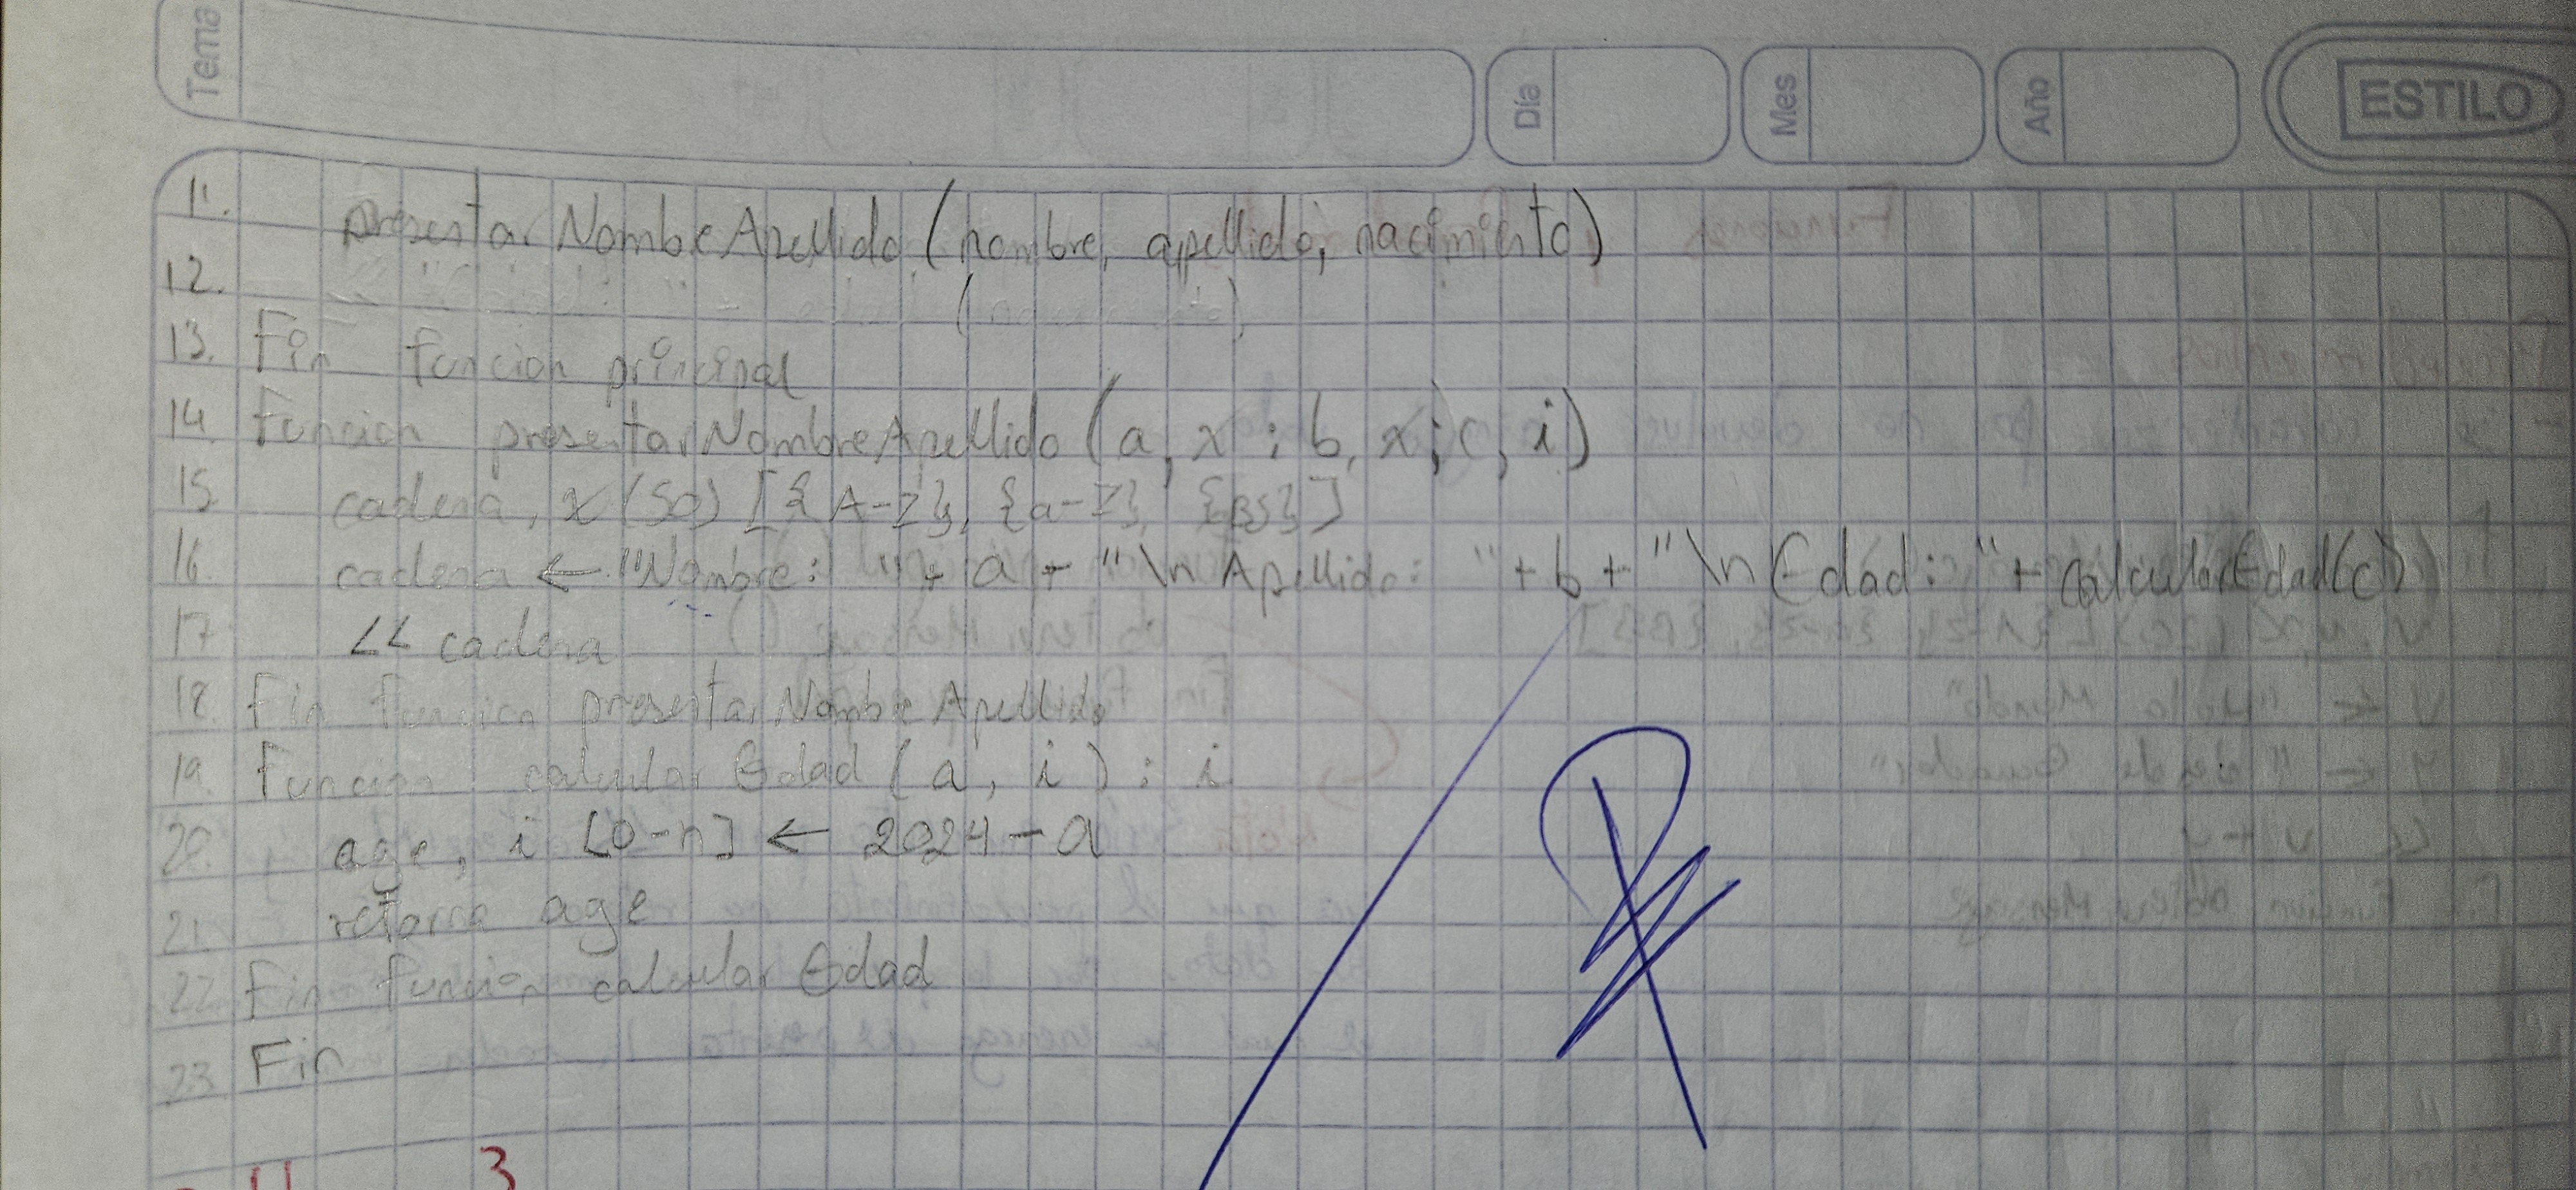 Tema
Día
Mes
Año
ESTILO
11. presentarNombeApellido (nombre, apellido, nacimiento)
12. (nacimiento)
13. Fin funcion principal
14. Funcion presentarNombreApellido (a, x ; b, x; c, i)
15. cadena, x (50) [{A-Z}, {a-z}, {BS}]
16. cadena ← "Nombre: " + a + "\n Apellido: " + b + "\n Edad: " + calcularEdad(c)
17. << cadena
18. Fin funcion presentarNombreApellido
19. Funcion calcularEdad (a, i) : i
20. age, i [0-n] ← 2024 - a
21. retorna age
22. Fin funcion calcularEdad
23. Fin
3